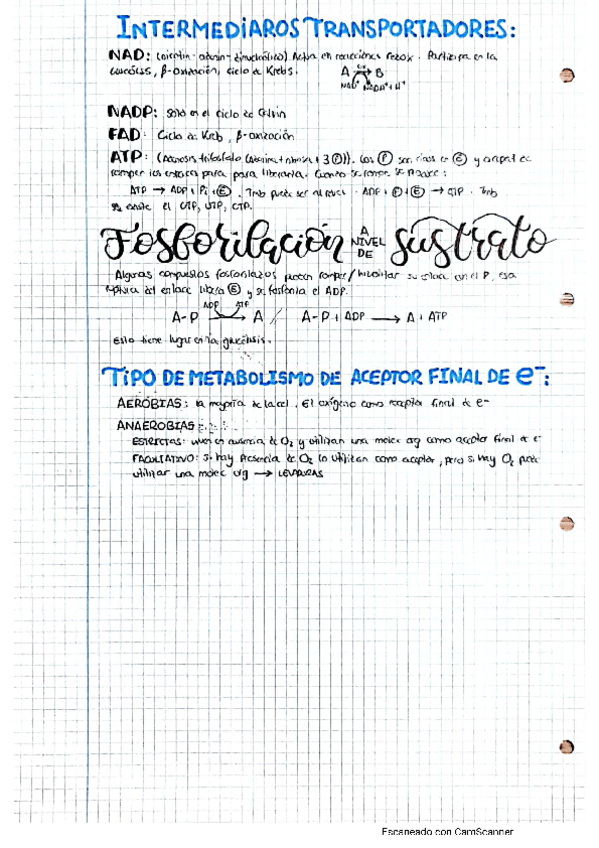 INTERMEDIAROS TRANSPORTADORES:
NAD: Actua en reacciones redox. Participa en la
glucólisis, β-oxidación, ciclo de Krebs. A B
NAD+ NADH+H+
NADP: Solo en el ciclo de Calvin
FAD: Ciclo de Kreb, β-oxidación
ATP: (Adenosis trifosfato (adenina + ribosa + 3 P)). Los P son ricos en E y
romper los enlaces para para liberarla. Cuando se rompe se produce:
ATP → ADP + Pi + E. Tmb puede ser al revés. ADP + P + E → ATP. Tmb
existe el GTP, UTP, CTP.
Fosforilación A NIVEL DE sustrato
Algunos compuestos fosforilazos pueden romper/hidrolizar su enlace con el P, esa
ruptura del enlace libera E y se fosforila el ADP.
ADP ATP
A-P → A // A-P + ADP → A + ATP
Esto tiene lugar en la glucólisis.
TIPO DE METABOLISMO DE ACEPTOR FINAL DE e-:
AEROBIAS: la mayoría de la cel. El oxígeno como aceptor final de e-
ANAEROBIAS:
ESTRICTAS: viven en ausencia de O2 y utilizan una molec org como aceptor final de e-
FACULTATIVO: Si hay presencia de O2 lo utilizan como aceptor, pero si hay O2 puede
utilizar una molec org → LEVADURAS
Escaneado con CamScanner